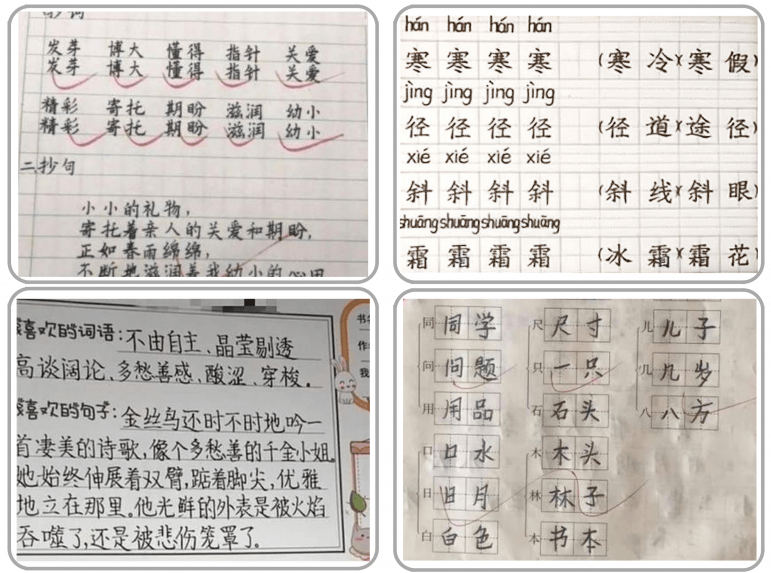 抄词
发芽 博大 懂得 指针 关爱
发芽 博大 懂得 指针 关爱
精彩 寄托 期盼 滋润 幼小
精彩 寄托 期盼 滋润 幼小
二抄句
小小的礼物,
寄托着亲人的关爱和期盼,
正如春雨绵绵,
不断地滋润着我幼小的心田
hán hán hán hán
寒 寒 寒 寒 (寒冷)(寒假)
jìng jìng jìng jìng
径 径 径 径 (径道)(途径)
xié xié xié xié
斜 斜 斜 斜 (斜线)(斜眼)
shuāng shuāng shuāng shuāng
霜 霜 霜 霜 (冰霜)(霜花)
喜欢的词语:不由自主、晶莹剔透
高谈阔论、多愁善感、酸涩、穿梭。
喜欢的句子:金丝鸟还时不时地吟一
首凄美的诗歌,像个多愁善的千金小姐。
她始终伸展着双臂,踮着脚尖,优雅
地立在那里。他光鲜的外表是被火焰
吞噬了,还是被悲伤笼罩了。
书
作
我
同 同学 尺 尺寸 儿 儿子
问 问题 只 一只 几 几岁
用 用品 石 石头 八 八方
口 口水 木 木头
日 日月 林 林子
白 白色 本 书本